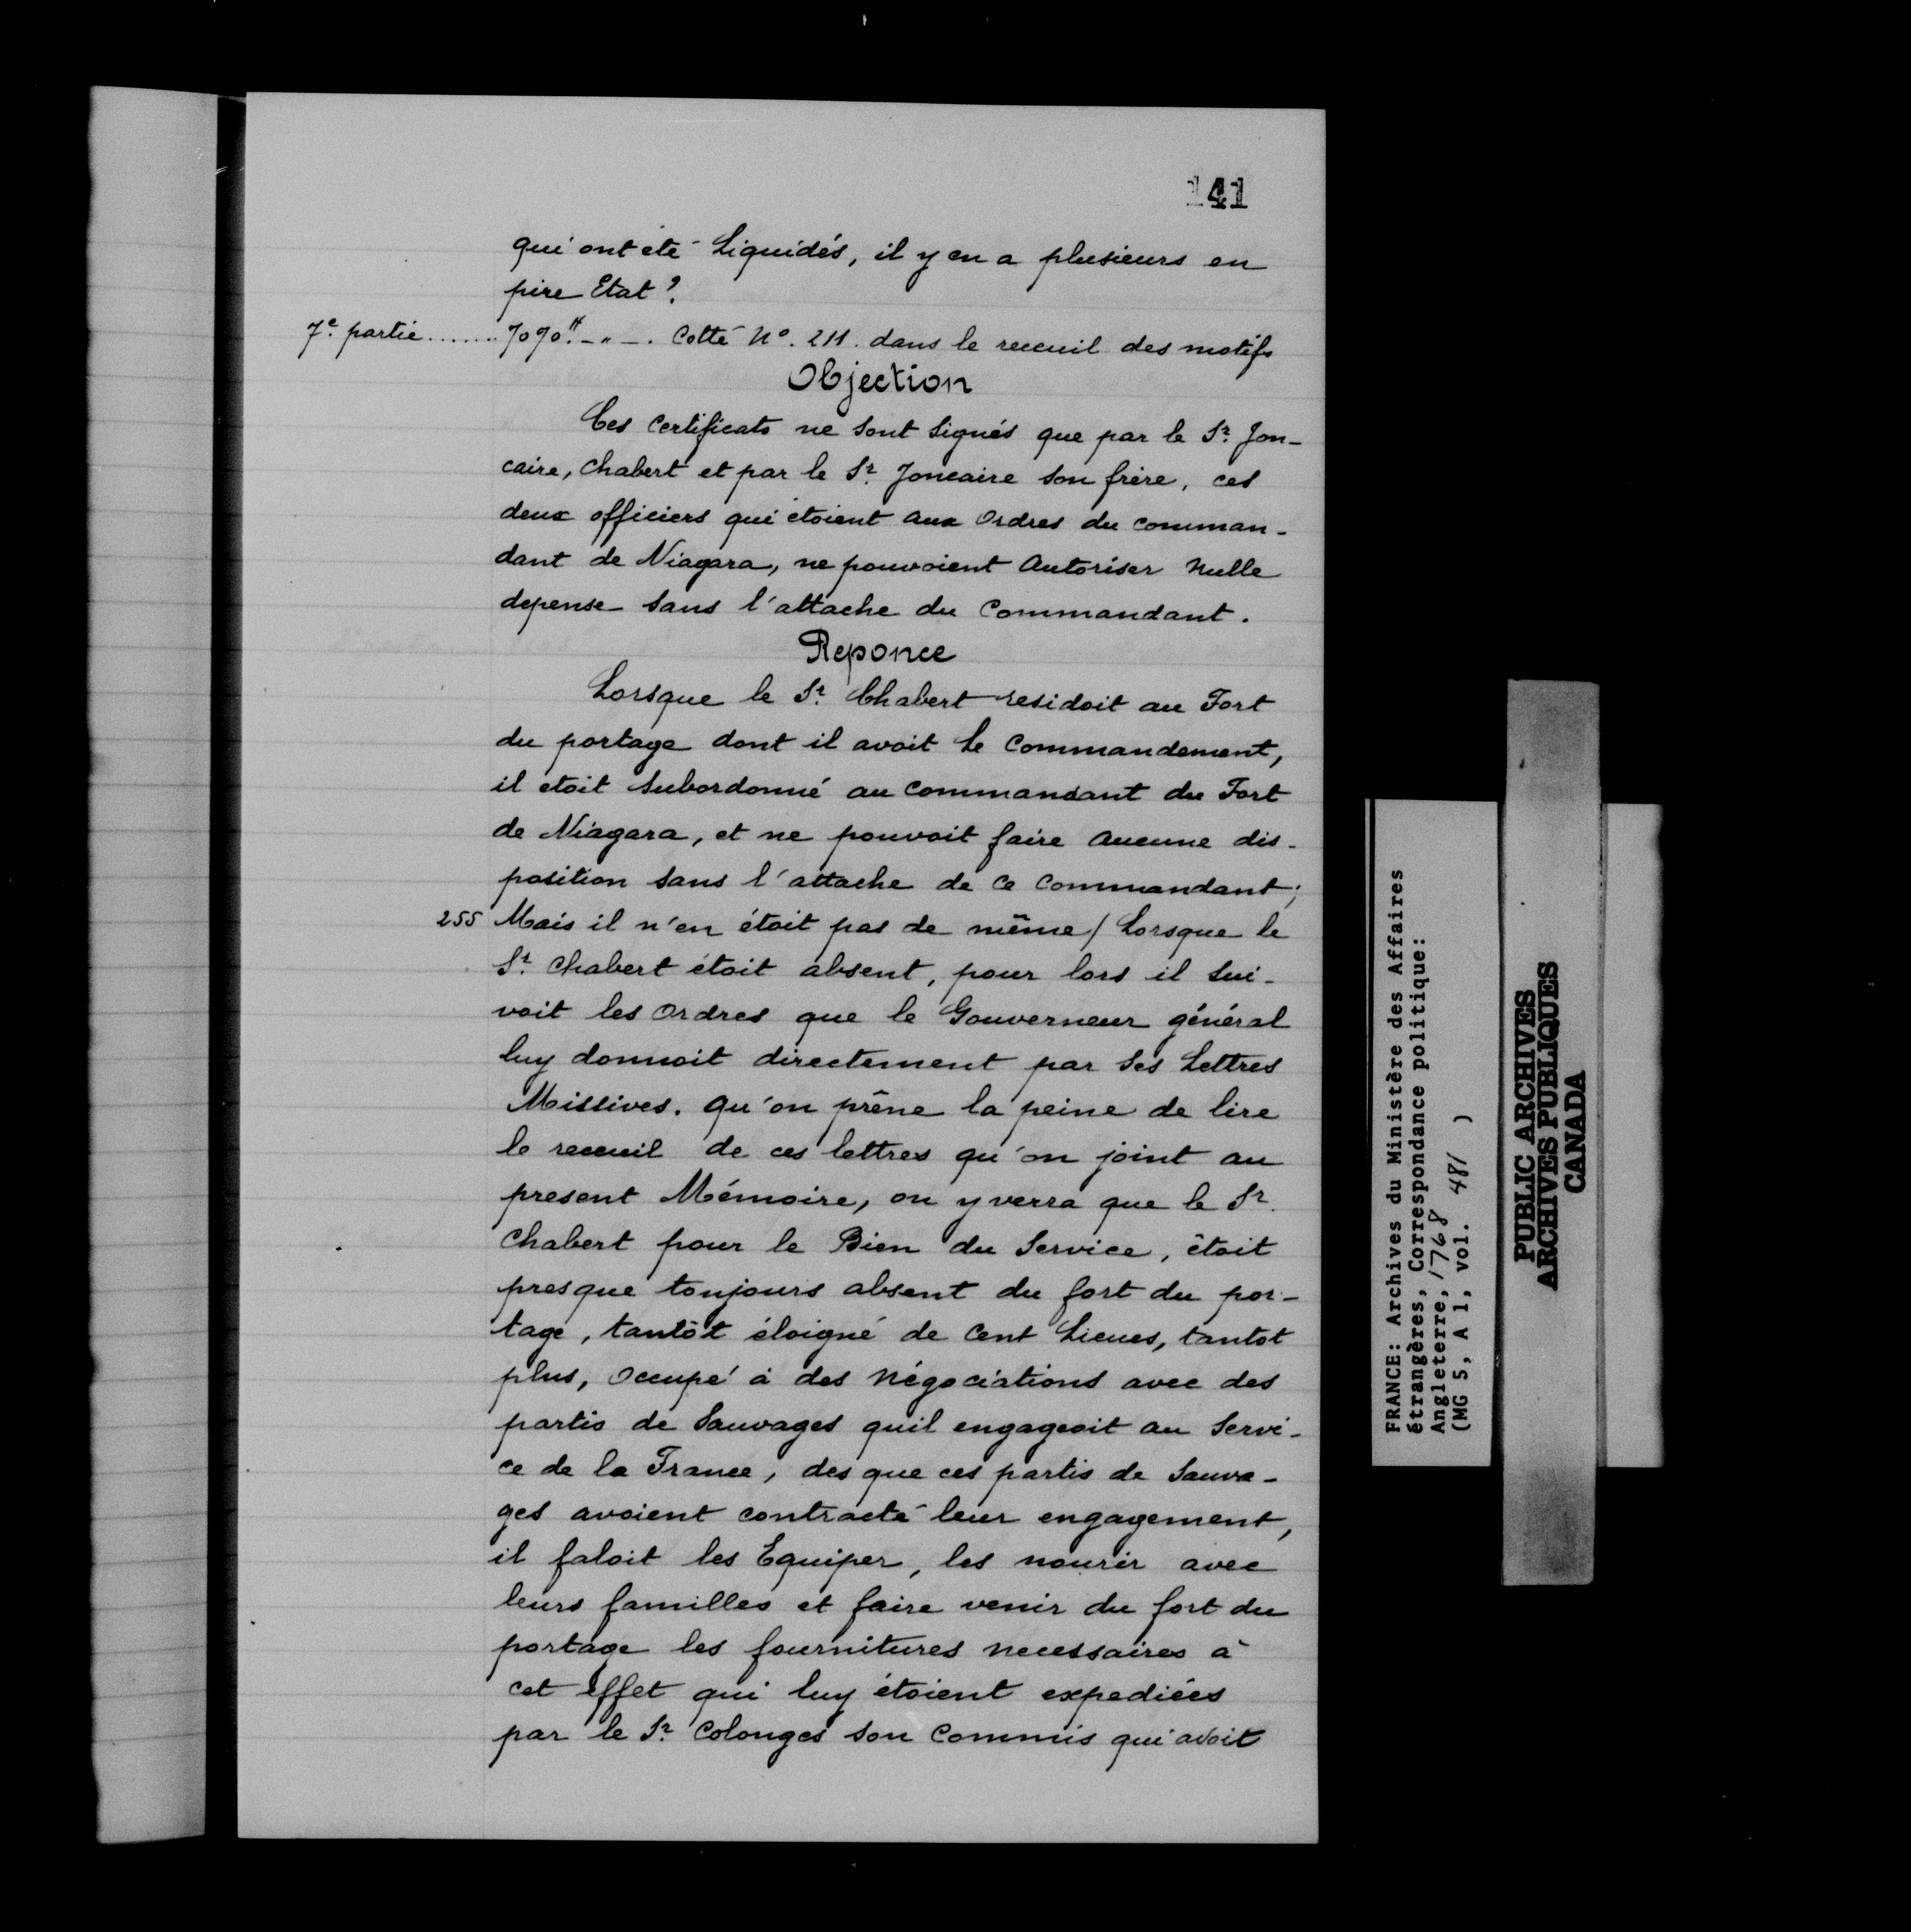 141
qui ont été Liquidés, il y en a plusieurs en
pire Etat?
7e. partie....... 7070.# - " - . Cotté No. 211. dans le recueil des motifs
Objection
Ces Certificats ne sont signés que par le Sr. Jon-
caire, Chabert et par le Sr. Joncaire son frère, ces
deux officiers qui étoient aux Ordres du comman-
dant de Niagara, ne pouvoient Autoriser Nulle
depense sans l'attache du Commandant.
Reponce
Lorsque le Sr. Chabert residoit au Fort
du portage dont il avoit le Commandement,
il étoit subordonné au Commandant du Fort
de Niagara, et ne pouvoit faire aucune dis-
position sans l'attache de ce Commandant;
255 Mais il n'en étoit pas de même / Lorsque le
Sr. Chabert étoit absent, pour lors il sui-
voit les Ordres que le Gouverneur général
luy donnoit directement par ses Lettres
Missives. Qu'on prêne la peine de lire
le recueil de ces lettres qu'on joint au
present Mémoire, on y verra que le Sr.
Chabert pour le Bien du Service, étoit
presque toujours absent du fort du por-
tage, tantôt éloigné de Cent Lieues, tantot
plus, Occupé à des Négociations avec des
partis de Sauvages quil engageoit au Servi-
ce de la France, des que ces partis de Sauva-
ges avoient contracté leur engagement,
il faloit les Equiper, les nourir avec
leurs familles et faire venir du fort du
portage les fournitures necessaires à
cet Effet qui luy étoient expediées
par le Sr. Colonges son Commis qui avoit
FRANCE: Archives du Ministère des Affaires
étrangères, Correspondance politique:
Angleterre, 1768
(MG 5, A 1, vol. 481 )
PUBLIC ARCHIVES
ARCHIVES PUBLIQUES
CANADA